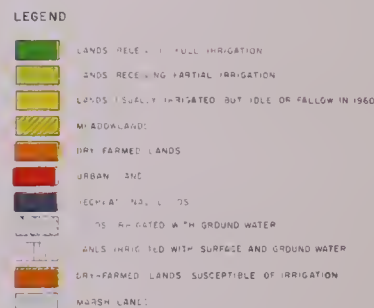 LEGEND
LANDS RECEIVING FULL IRRIGATION
LANDS RECEIVING PARTIAL IRRIGATION
LANDS USUALLY IRRIGATED BUT IDLE OR FALLOW IN 1960
MEADOWLANDS
DRY FARMED LANDS
URBAN LANDS
RECREATIONAL LANDS
LANDS IRRIGATED WITH GROUND WATER
LANDS IRRIGATED WITH SURFACE AND GROUND WATER
DRY-FARMED LANDS SUSCEPTIBLE OF IRRIGATION
MARSH LANDS